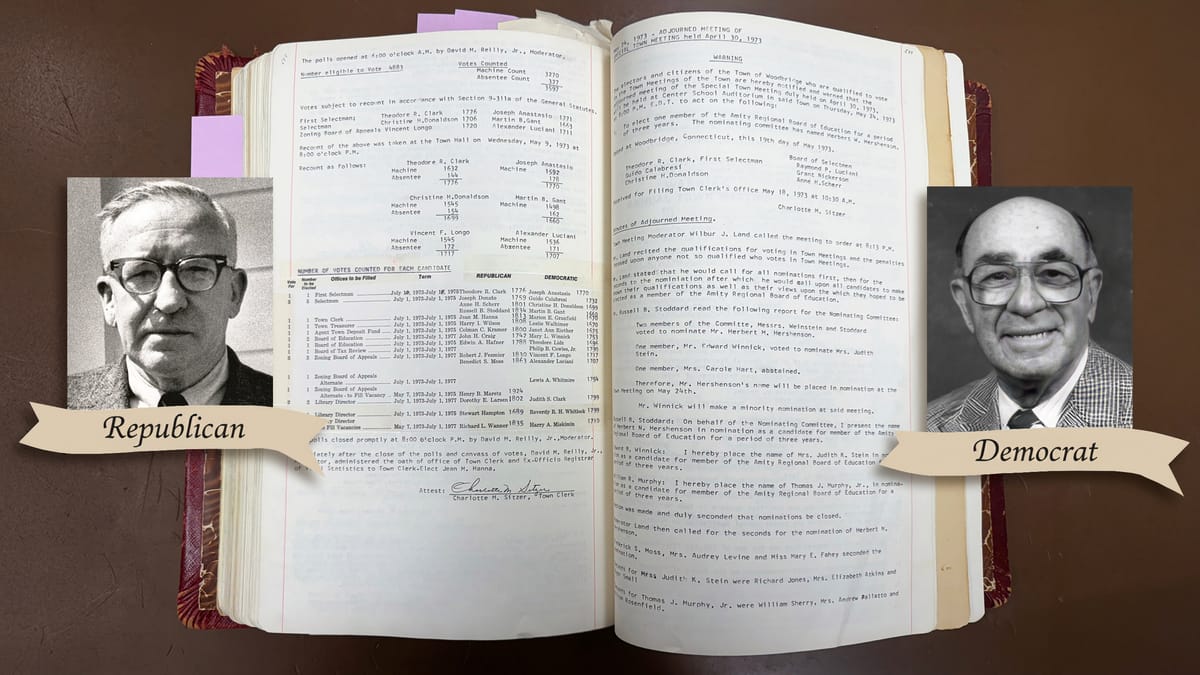 The polls opened at 6:00 o'clock A.M. by David M. Reilly, Jr., Moderator.
Number eligible to Vote 4883
Votes Counted
Machine Count 3270
Absentee Count 327
3597
Votes subject to recount in accordance with Section 9-311a of the General Statutes.
First Selectman: Theodore R. Clark 1776 Joseph Anastasio 1771
Selectman Christine H.Donaldson 1706 Martin B.Gant 1663
Zoning Board of Appeals Vincent Longo 1720 Alexander Luciani 1711
Recount of the above was taken at the Town Hall on Wednesday, May 9, 1973 at
8:00 o'clock P.M.
Recount as Follows:
Theodore R. Clark Joseph Anastasio
Machine 1632 Machine 1592
Absentee 144 178
1776 1770
Christine H.Donaldson Martin B. Gant
Machine 1545 Machine 1498
Absentee 154 162
1699 1660
Vincent F. Longo Alexander Luciani
Machine 1545 Machine 1536
Absentee 172 171
1717 1707
NUMBER OF VOTES COUNTED FOR EACH CANDIDATE
Vote For Number to be Elected Offices to be Filled Term REPUBLICAN DEMOCRATIC
1 1 First Selectman Theodore R. Clark 1776 Joseph Anastasio 1770
Selectmen July 1, 1973-July 1, 1975 Joseph Donato 1759 Guido Calabresi
Anne H. Scherr 1801 Christine H. Donaldson 1699
Russell B. Stoddard Martin B. Gant 1660
Town Clerk July 1, 1973-July 1, 1975 Jean M. Hanna
Town Treasurer July 1, 1973-July 1, 1975 Harry I. Wilson
Agent Town Deposit Fund July 1, 1973-July 1, 1975 Colman C. Kramer
Board of Education July 1, 1973-July 1, 1975 John H. Craig Mary L. Winnick
Board of Education July 1, 1973-July 1, 1977 Edwin A. Hafner 1788
Board of Tax Review
Zoning Board of Appeals July 1, 1973-July 1, 1977 Robert J. Fennier 1830 Vincent F. Longo 1717
Benedict S. Moss 1863 Alexander Luciani 1707
1 1 Zoning Board of Appeals
Alternate July 1, 1973-July 1, 1977 Lewis A. Whitmire
1 1 Zoning Board of Appeals
Alternate - to Fill Vacancy May 7, 1973-July 1, 1975 Henry B. Maretz 1924
Library Director July 1, 1973-July 1, 1977 Dorothy E. Larsen 1802 Judith S. Clark 1799
Library Director July 1, 1973-July 1, 1977 Stewart Hampton 1689 Beverly H. Whitlock 1799
Director
Fill Vacancies May 7, 1973-July 1, 1977 Richard L. Wanner 1835 Harry A. Miskimin
polls closed promptly at 8:00 o'clock P.M. by David M. Reilly, Jr., Moderator.
after the close of the polls and canvass of votes, David M. Reilly, Jr.,
administered the oath of office of Town Clerk and Ex-Officio Registrar
Statistics to Town Clerk-Elect Jean M. Hanna.
Attest: Charlotte M. Sitzer
Charlotte M. Sitzer, Town Clerk
24, 1973 - ADJOURNED MEETING OF
TOWN MEETING held April 30, 1973
WARNING
electors and citizens of the Town of Woodbridge who are qualified to vote
Town Meetings of the Town are hereby notified and warned that the
meeting of the Special Town Meeting duly held on April 30, 1973,
be held at Center School Auditorium in said Town on Thursday, May 24, 1973
8:00 P.M. E.D.T. to act on the following:
To elect one member of the Amity Regional Board of Education for a period
of three years. The nominating committee has named Herbert M. Hershenson.
at Woodbridge, Connecticut, this 19th day of May 1973.
Theodore R. Clark, First Selectman Board of Selectmen
Guido Calabresi Raymond P. Luciani
Christine H.Donaldson Grant Nickerson
Anne H.Scherr
Received for Filing Town Clerk's Office May 18, 1973 at 10:30 A.M.
Charlotte M. Sitzer
Minutes of Adjourned Meeting.
Meeting Moderator Wilbur J. Land called the meeting to order at 8:13 P.M.
Land recited the qualifications for voting in Town Meetings and the penalties
upon anyone not so qualified who votes in Town Meetings.
Land stated that he would call for all nominations first, then for the
seconds to the nomination after which he would call upon all candidates to make
their qualifications as well as their views upon which they hoped to be
elected as a member of Amity Regional Board of Education.
Russell B. Stoddard read the following report for the Nominating Committee:
Two members of the Committe, Messrs. Weinstein and Stoddard
voted to nominate Mr. Herbert M. Hershenson.
One member, Mr. Edward Winnick, voted to nominate Mrs. Judith
Stein.
One member, Mrs. Carole Hart, abstained.
Therefore, Mr. Hershenson's name will be placed in nomination at the
Meeting on May 24th.
Mr. Winnick will make a minority nomination at said meeting.
B. Stoddard: On behalf of the Nominating Committee, I present the name
Herbert M. Hershenson in nomination as a candidate for member of the Amity
Regional Board of Education for a period of three years.
Winnick: I hereby place the name of Mrs. Judith K. Stein in
as a candidate for member of the Amity Regional Board of Education
of three years.
R. Murphy: I hereby place the name of Thomas J. Murphy, Jr., in nomina-
as a candidate for member of the Amity Regional Board of Education for a
of three years.
was made and duly seconded that nominations be closed.
Moderator Land then called for the seconds for the nomination of Herbert M.
Hershenson.
S. Moss, Mrs. Audrey Levine and Miss Mary E. Fahey seconded the
for Mrs Judith K. Stein were Richard Jones, Mrs. Elizabeth Atkins and
Small
for Thomas J. Murphy, Jr. were William Sherry, Mrs. Andrew Pallotto and
Rosenfield.
Republican
Democrat